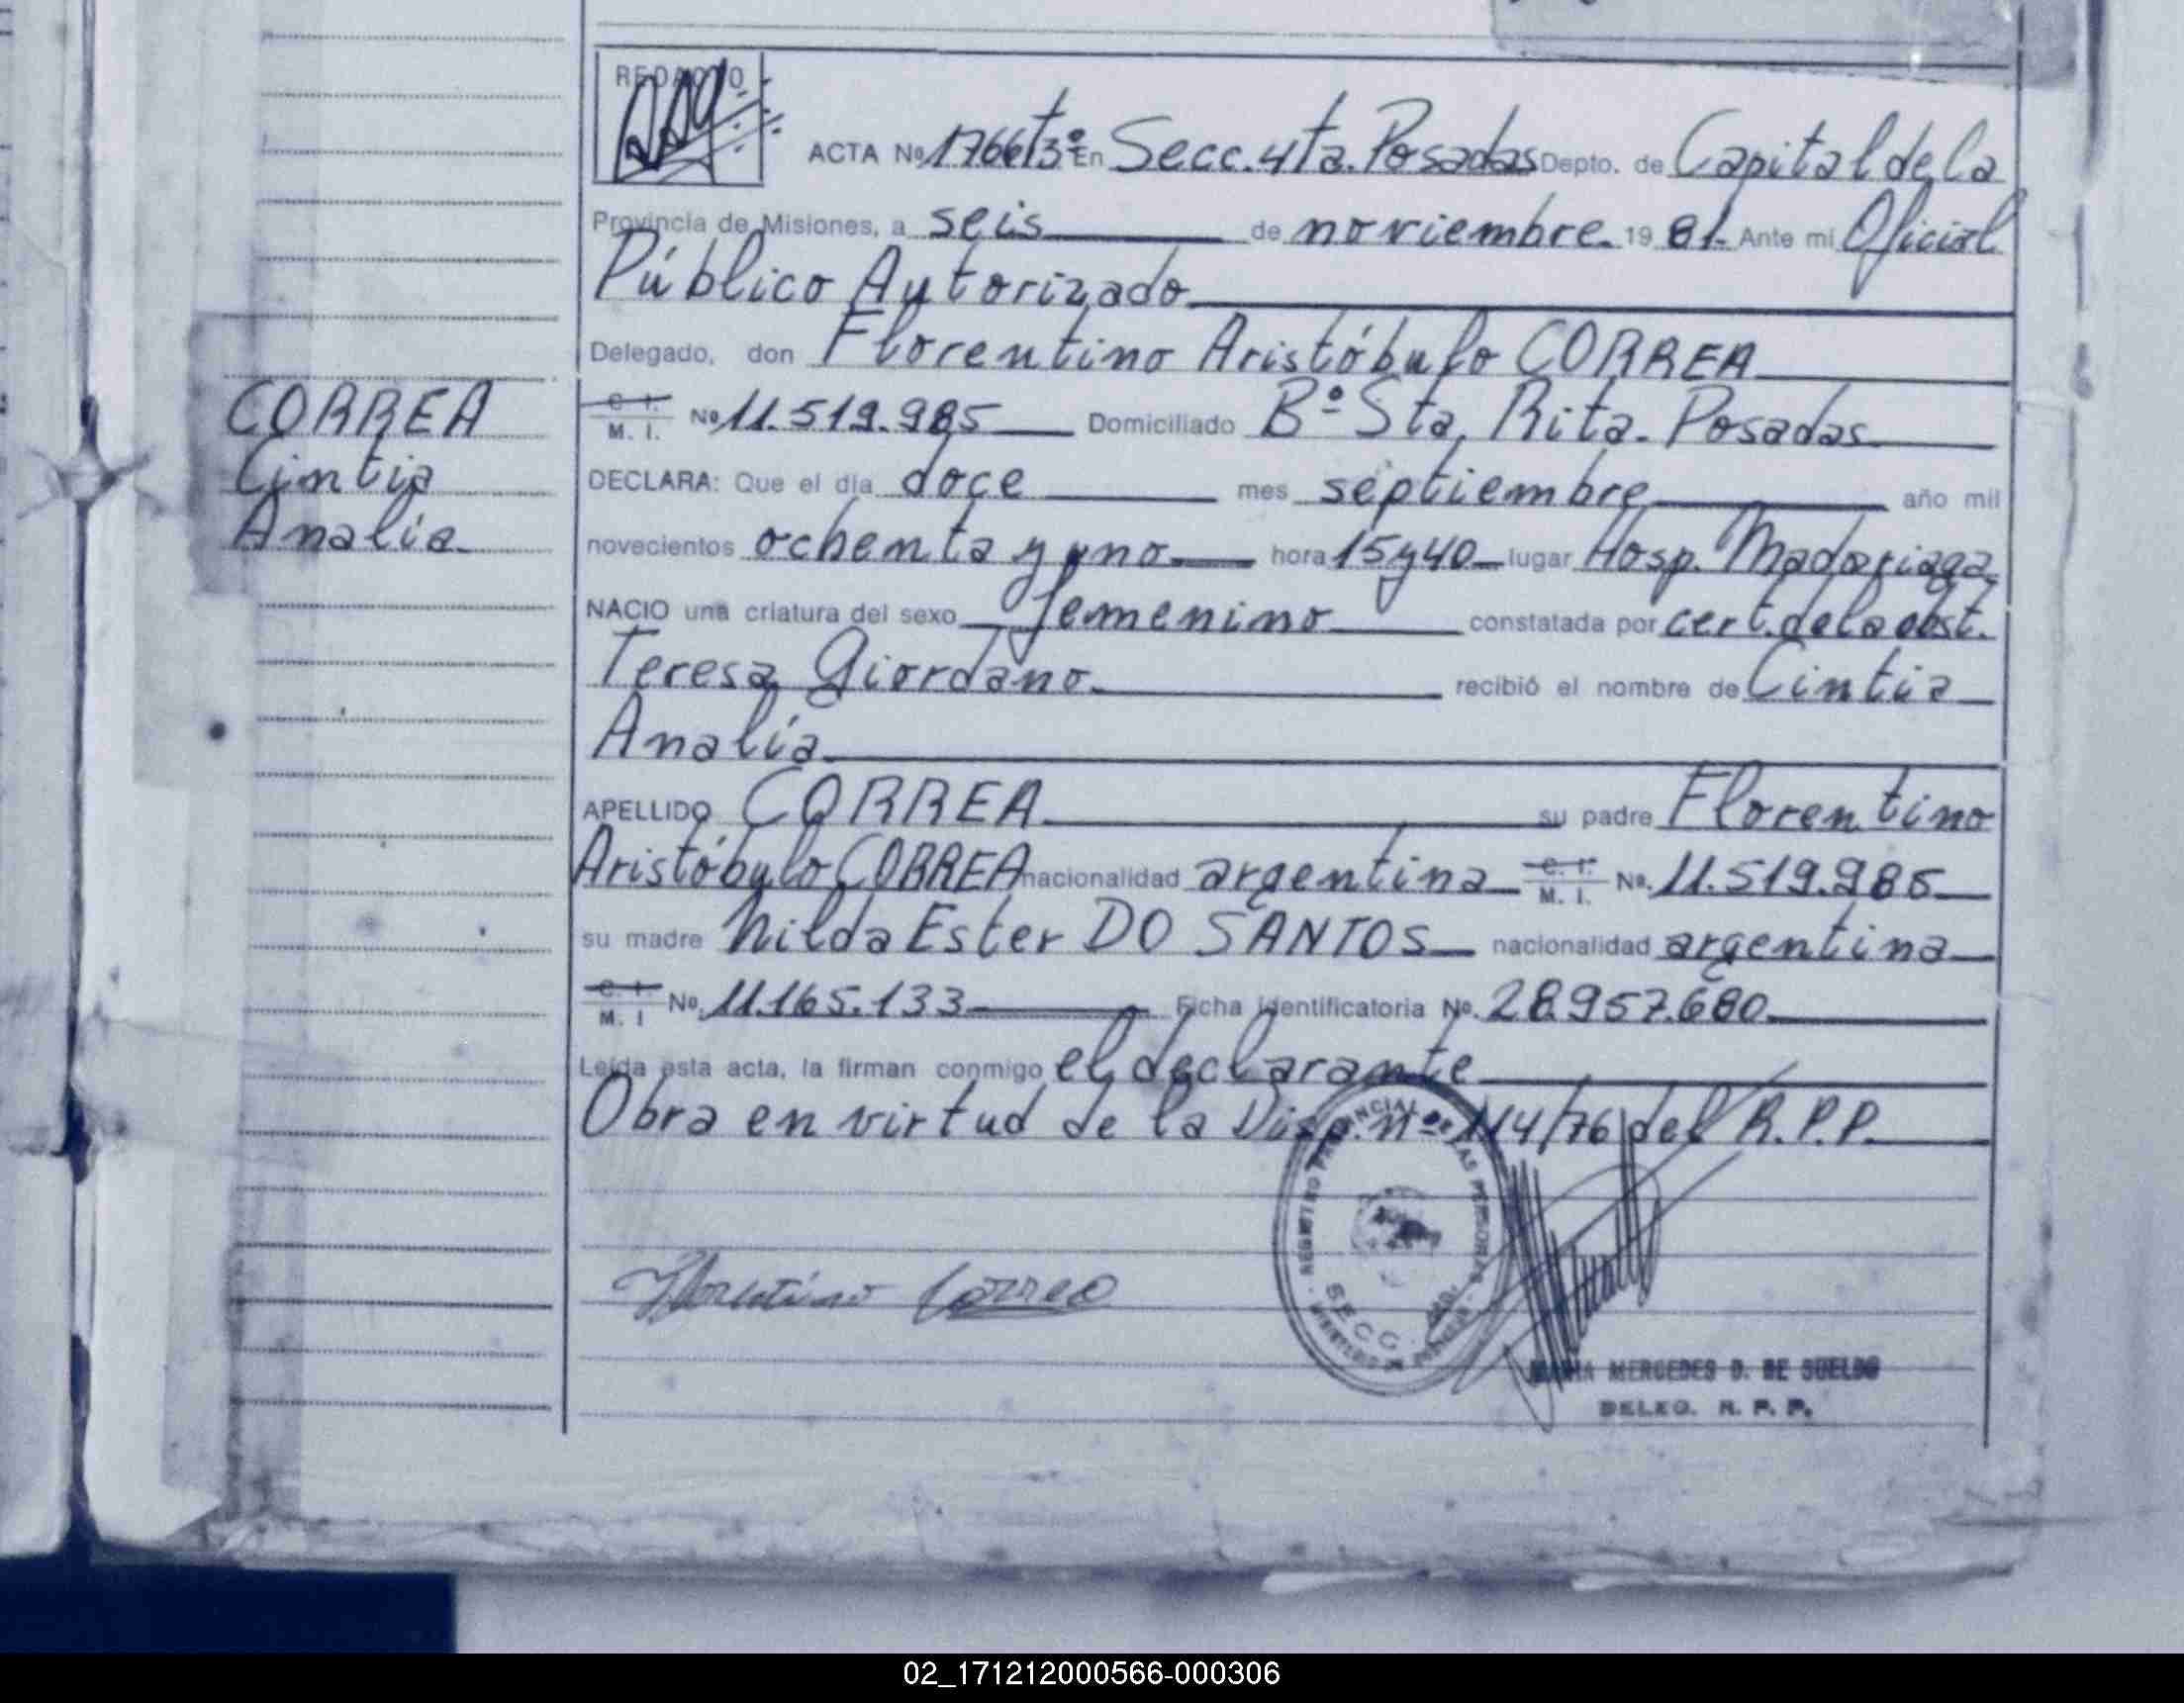 REDACTO
ACTA Nº 1766 Tº 3º En Secc. 4ta. Posadas Depto. de Capital de la
Provincia de Misiones, a seis de noviembre. 19 81. Ante mi Oficial
Público Autorizado
Delegado, don Florentino Aristóbulo CORREA
C. I.
M. I. Nº 11.519.985 Domiciliado Bº Sta. Rita. Posadas
CORREA
Cintia
Analía.
DECLARA: Que el día doce mes septiembre año mil
novecientos ochenta y uno hora 15 y 40 lugar Hosp. Madariaga
NACIO una criatura del sexo femenino constatada por cert. de la obst.
Teresa Giordano. recibió el nombre de Cintia
Analía
APELLIDO CORREA su padre Florentino
Aristóbulo CORREA nacionalidad argentina C. I. M. I. Nº. 11.519.985
su madre Nilda Ester DO SANTOS nacionalidad argentina
C. I. M. I Nº. 11.165.133 Ficha identificatoria Nº. 28.957.680
Leída esta acta, la firman conmigo el declarante
Obra en virtud de la Disp. nº 114/76 del R.P.P.
REGISTRO PROVINCIAL DE LAS PERSONAS
SECC.
Florentino Correa
MARIA MERCEDES D. DE SUELDO
DELEG. R. P. P.
02_171212000566-000306